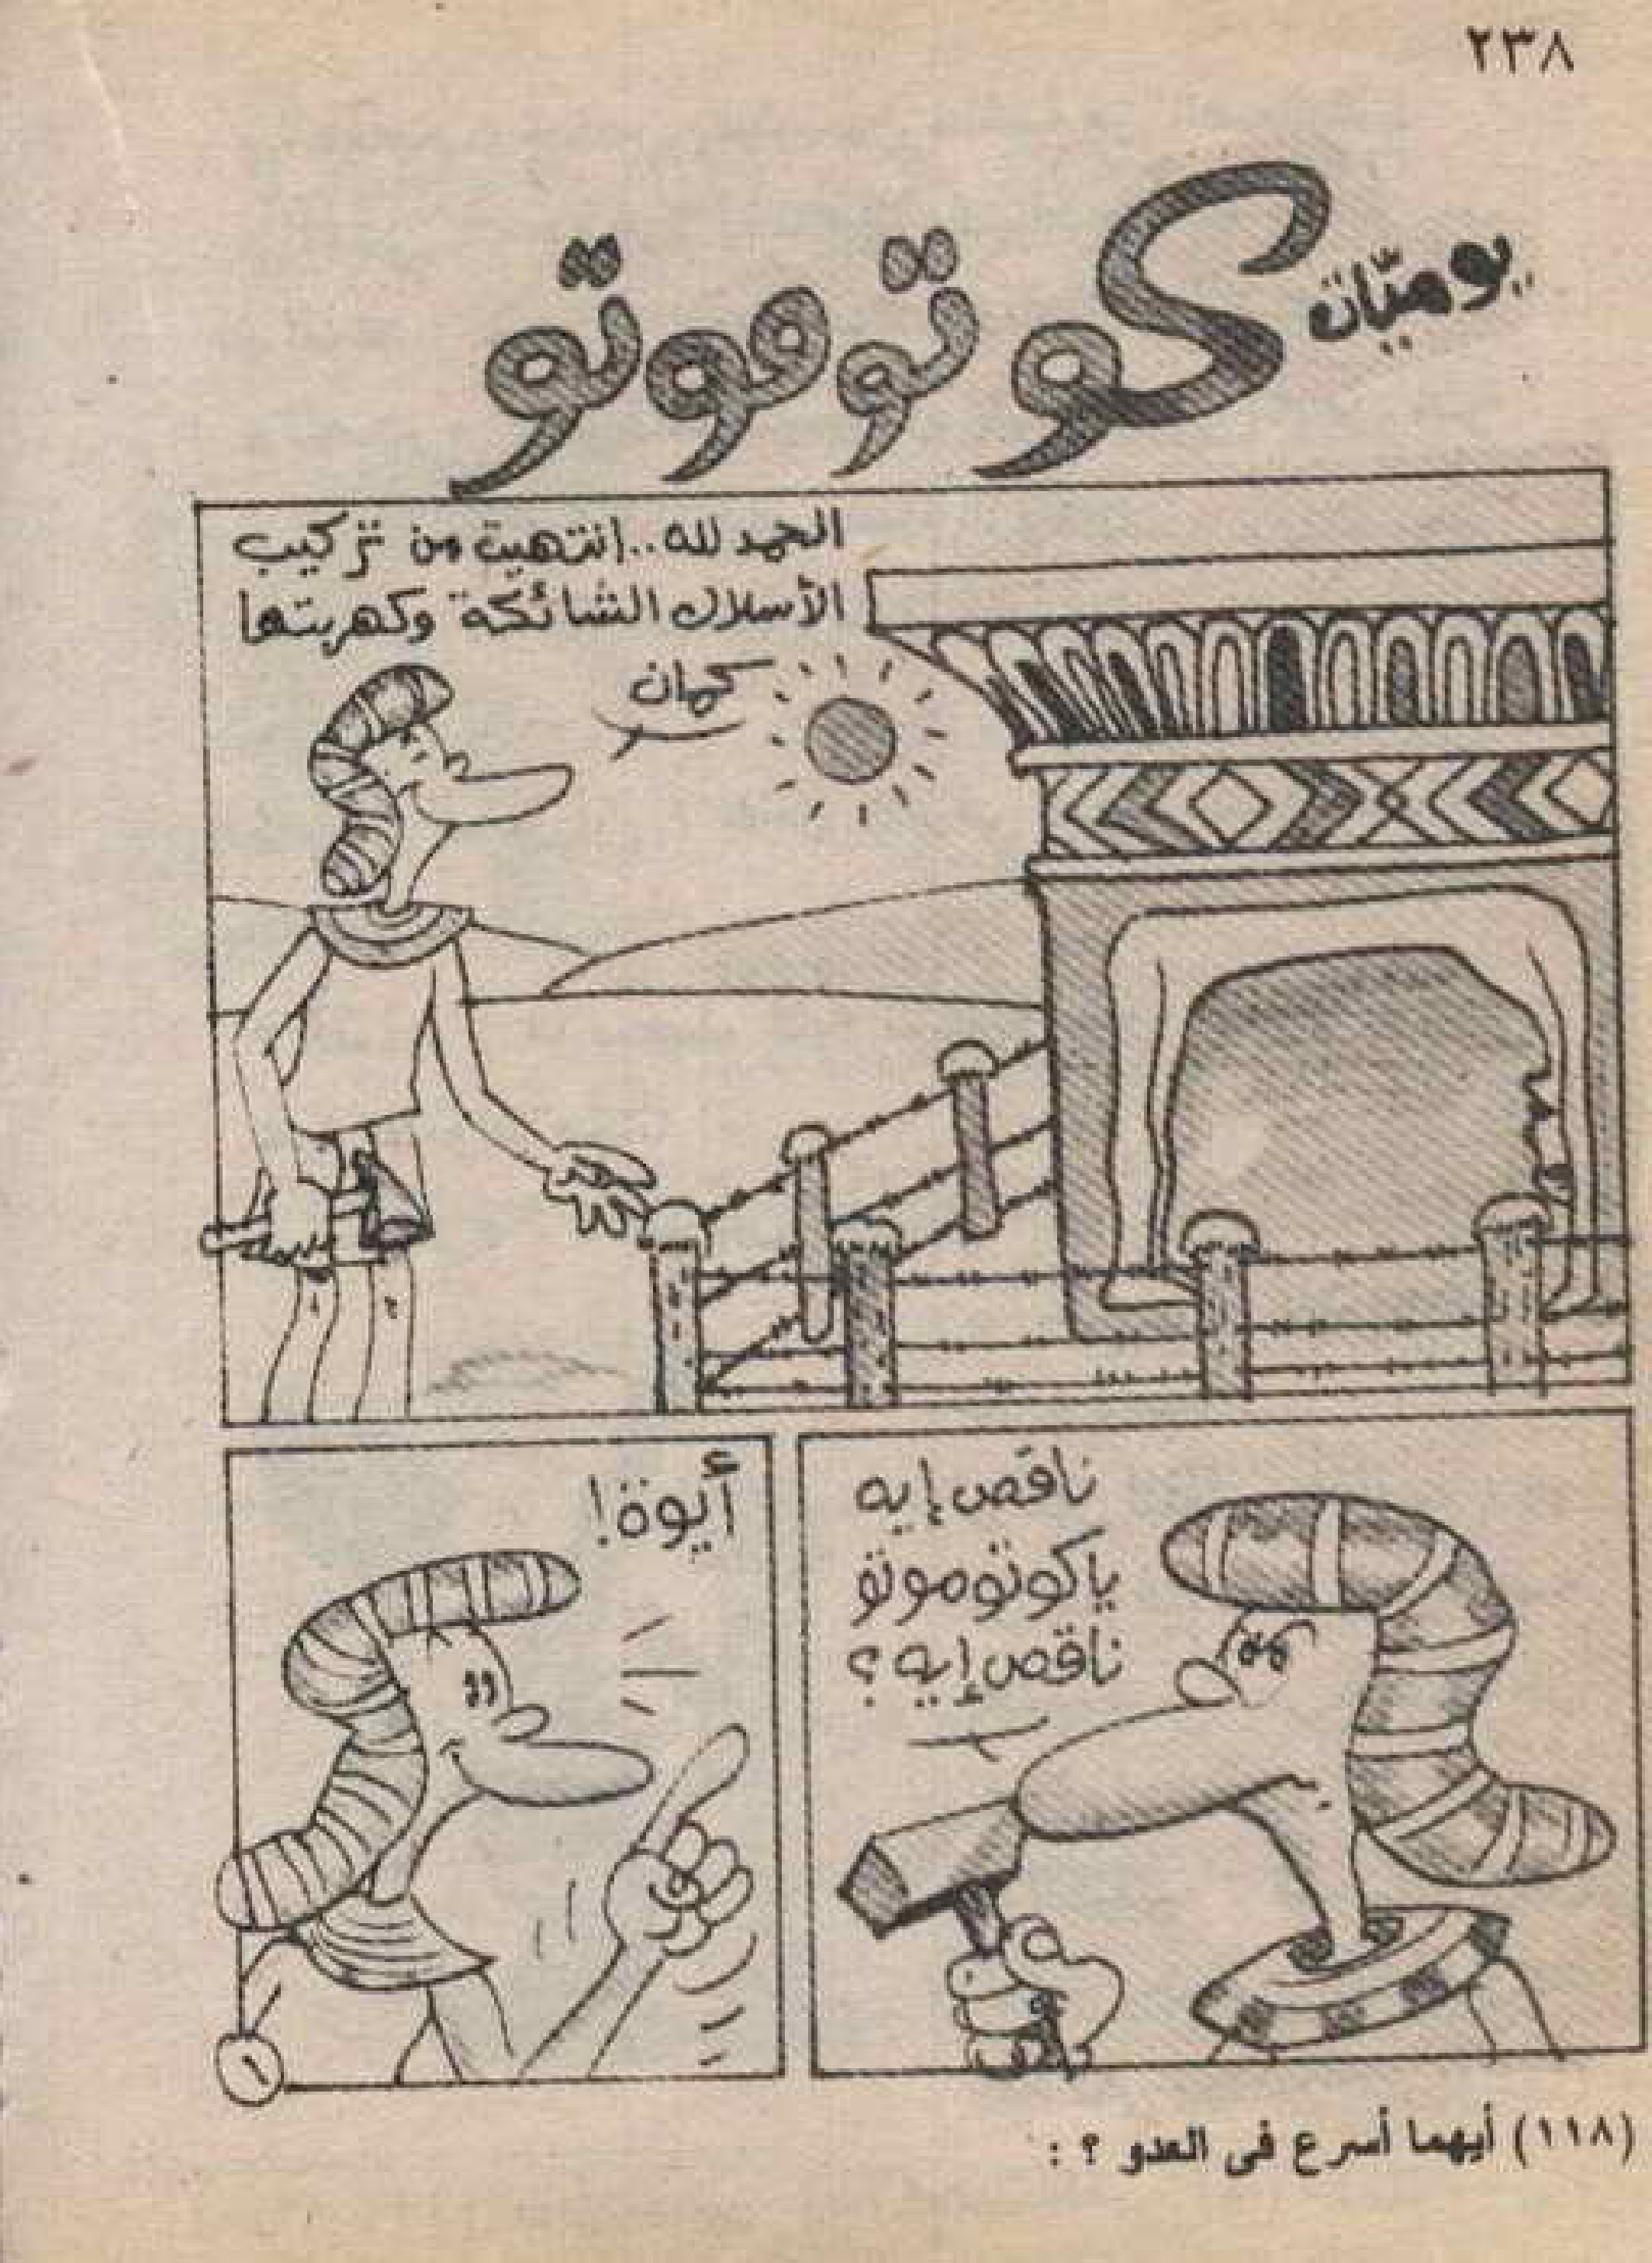 ٢٣٨
يوميّات كوتوموتو
الحمد لله.. انتهيت من تركيب
الأسلاك الشائكة وكهربتها
كمان
ناقص إيه
ياكوتوموتو
ناقص إيه؟
أيوة!
١
(١١٨) أيهما أسرع فى العدو ؟ :